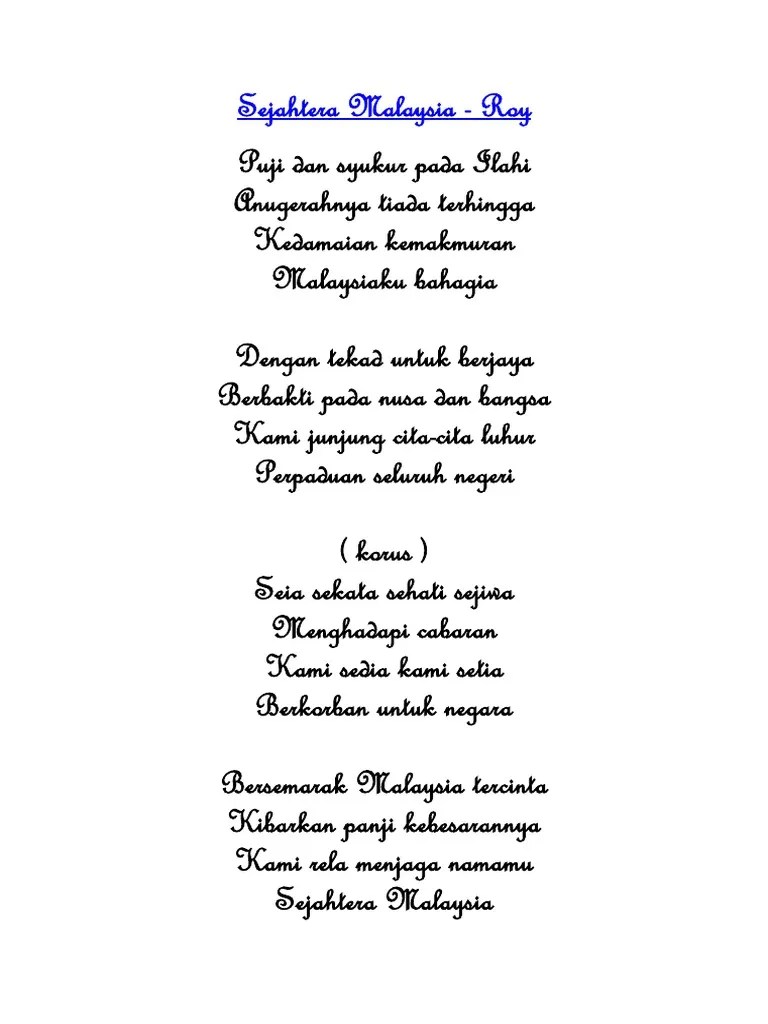 Sejahtera Malaysia - Roy
Puji dan syukur pada Ilahi
Anugerahnya tiada terhingga
Kedamaian kemakmuran
Malaysiaku bahagia
Dengan tekad untuk berjaya
Berbakti pada nusa dan bangsa
Kami junjung cita-cita luhur
Perpaduan seluruh negeri
( korus )
Seia sekata sehati sejiwa
Menghadapi cabaran
Kami sedia kami setia
Berkorban untuk negara
Bersemarak Malaysia tercinta
Kibarkan panji kebesarannya
Kami rela menjaga namamu
Sejahtera Malaysia